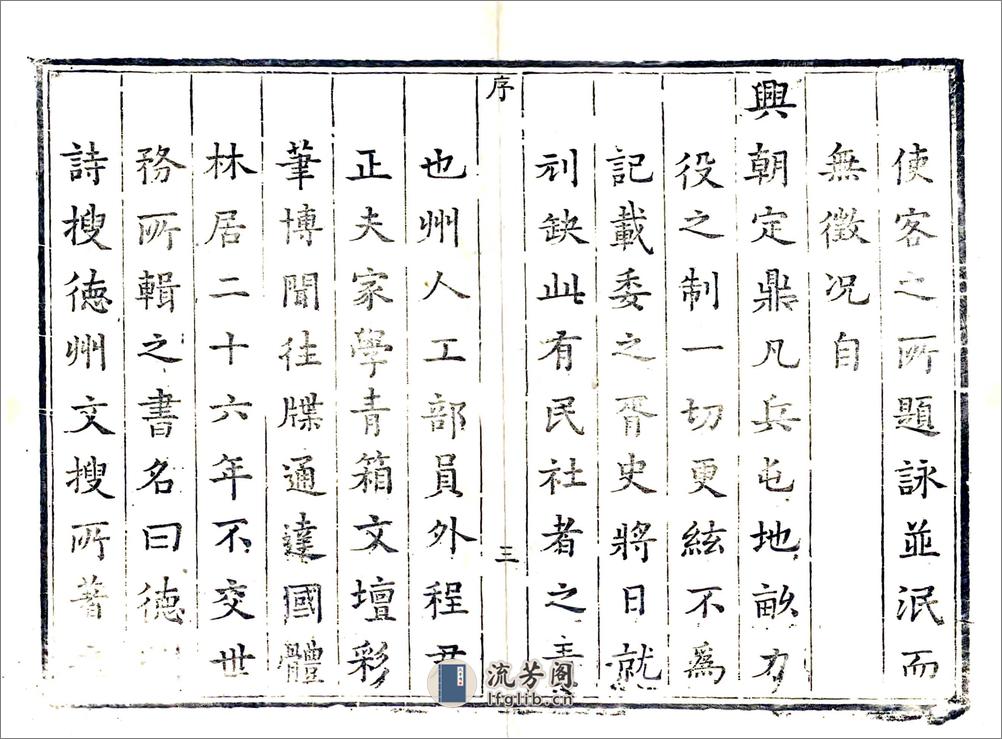 使客之所題詠並泯而
無徵况自
興朝定鼎凡兵屯地畝力
役之制一切更絃不為
記載委之胥史將日就
刓缺此有民社者之責
序
三
也州人工部員外程君
正夫家學青箱文壇彩
筆博聞徃牒通達國體
林居二十六年不交世
務所輯之書名曰徳
詩搜徳州文搜所著
流芳阁
lfglib.cn